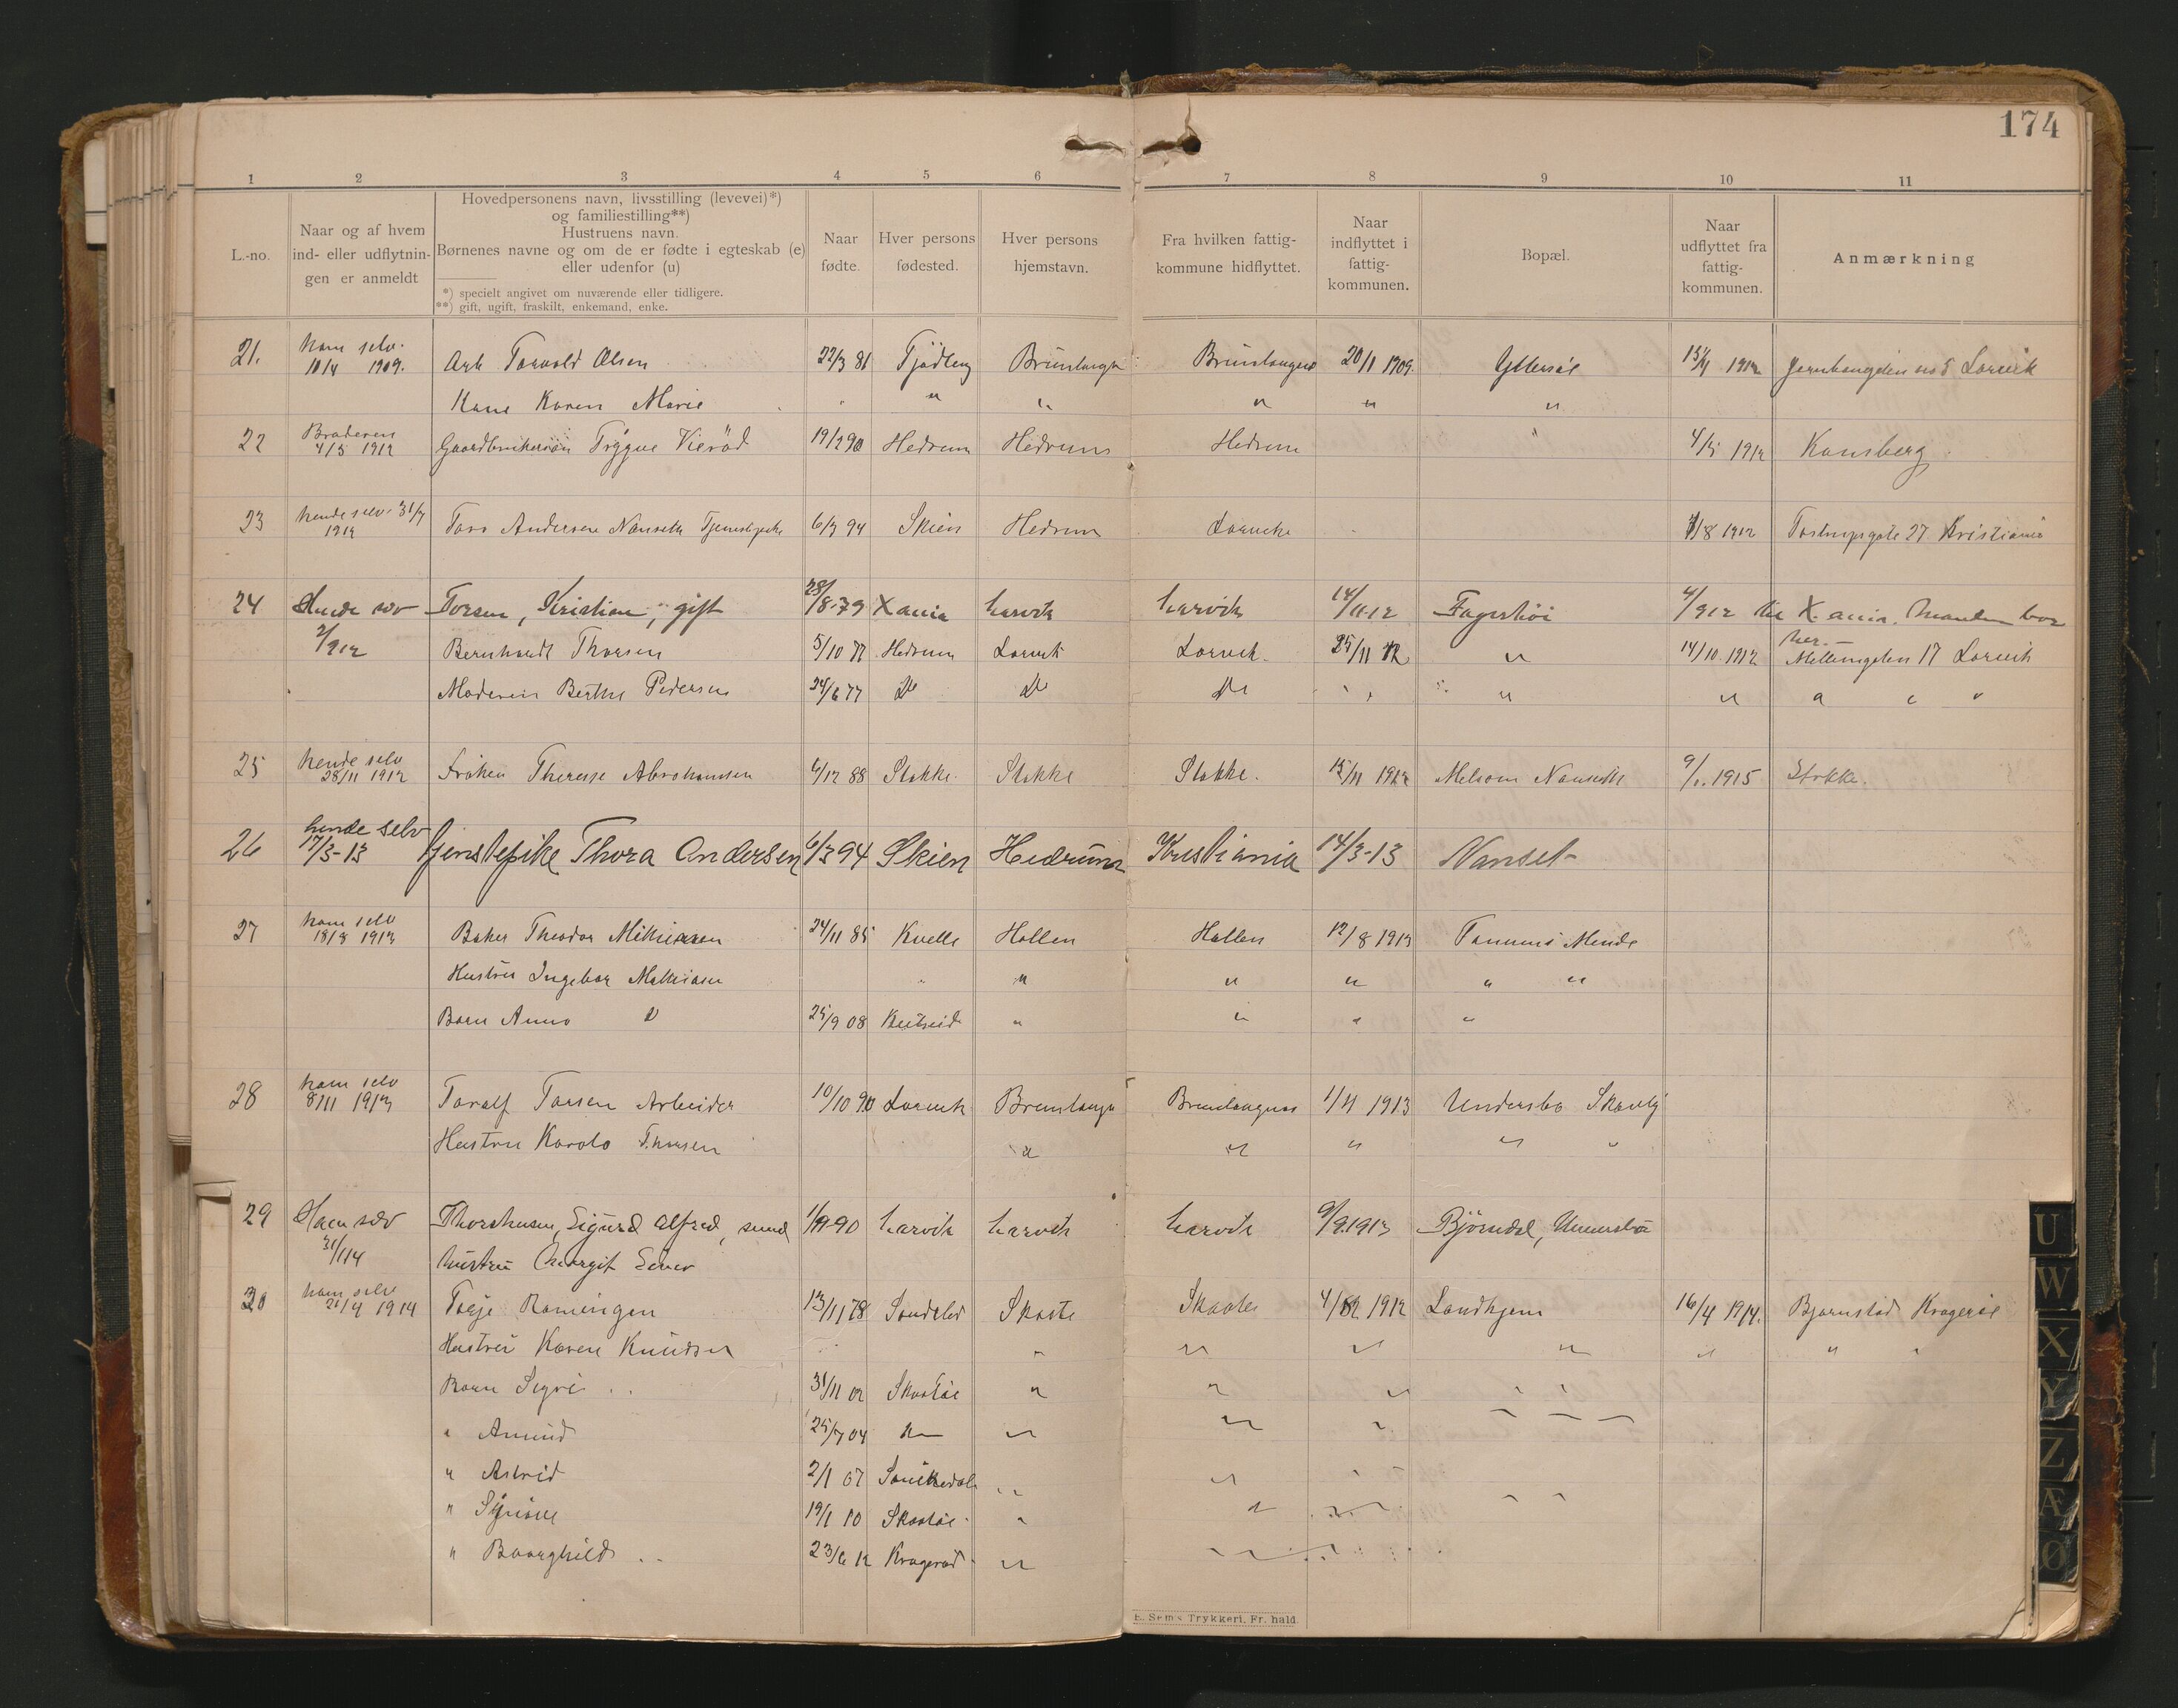 174
1 2 3 4 5 6 7 8 9 10 11
L.-no.
Naar og af hvem
ind- eller udflytnin-
gen er anmeldt
Hovedpersonens navn, livsstilling (levevei)*)
og familiestilling**)
Hustruens navn.
Børnenes navne og om de er fødte i egteskab (e)
eller udenfor (u)
*) specielt angivet om nuværende eller tidligere.
**) gift, ugift, fraskilt, enkemand, enke.
Naar
fødte.
Hver persons
fødested.
Hver persons
hjemstavn.
Fra hvilken fattig-
kommune hidflyttet.
Naar
indflyttet i
fattig-
kommunen.
Bopæl.
Naar
udflyttet fra
fattig-
kommunen.
Anmærkning
21. ham selv. Arb Torvald Olsen 22/3 81 Tjødling Brunlangn Brunlangnes 20/1 1909. 1912 no 5 Larvik
10/4 1909.
Kone Karen Marie " " " " "
22 Broderen Trygve Vierød 19/2 90 Hedrum Hedrum Hedrum " 4/5 1912 Konsberg
4/5 1912
23 hende selv 31/7 Tora Andersen Nanseth Tjenestepike 6/3 94 Skien Hedrum Larvik 1/8 1912 Tostrupsgate 27 Kristiania
1912
24 Hende selv Torsen, Kristiane, gift 28/8-79 Xania Larvik Larvik 14/11-12 Fagerhøi 4/9 12 til X.ania. Manden bor
her.
2/9 12 Bernhardt Thorsen 5/10 77 Hedrum Larvik Larvik. 25/11 12 " 14/10 1912 Mellemgaten 17 Larvik
Moderen Berthe Pedersen 24/6 77 Do Do Do " " " " " " "
25 hende selv Frøken Therese Abrahamsen 4/12 88 Stokke Stokke Stokke. 15/11 1912 Melsom Nanseth 9/1. 1915 Stokke.
28/11 1912
26 hende selv Tjenstepike Thora Andersen 6/3 94 Skien Hedrum Kristiania 14/3-13 Nanset
17/3-13
27 ham selv Baker Theodor Mathiasen 24/11 85 Kvelle Hollen Hollen 12/8 1913
18/8 1913
Hustru Ingebor Mathiasen " " " " "
Barn Anna D 25/9 08 " " " "
28 ham selv Toralf Torsen Arbeider 10/10 90 Larvik Brunlangn Brunlangnes 1/11 1913 Undersbo
8/11 1913
Hustru Karola Thorsen " " " " "
29 Ham selv Thorshusen, Sigurd Alfred, smed 1/9-90 Larvik Larvik Larvik 9/9.1913 Bjørndal, Unnersbo
31/1 14 hustru Margit
30 ham selv Torje 13/11 78 Søndeled Skaatø Skaatø 1912 Landhjem 16/4 1914. Bjørnstad Kragerø
21/4 1914
Hustru Karen Knudsen " " " " " " "
Barn Sigri 31/11 02 Skaatøe " " " " "
" Amund 25/7 04 " " " "
" Astrid 2/1 07 Sanikedal " "
" Synøve 19/1 10 Skaatøe "
" Baarghild 23/6 12 Kragerød "
E. Sem's Trykkeri, Fr.hald.
U
W
X
Y
Z
Æ
Ø